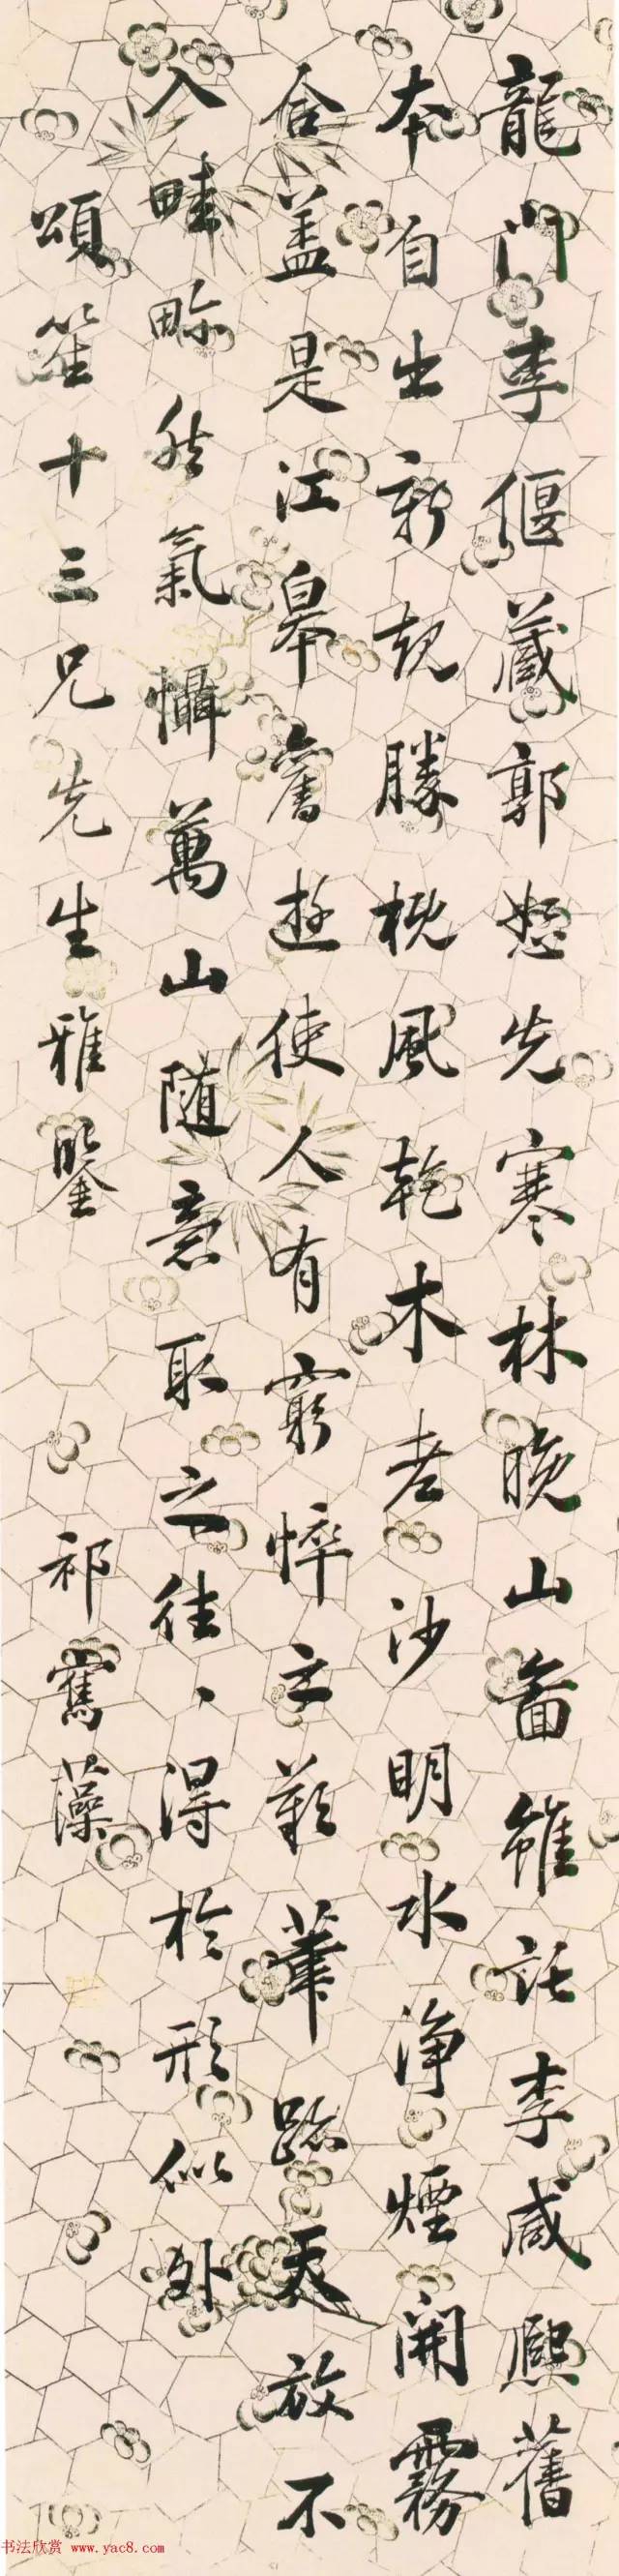 龍門李偃藏郭恕先寒林晚山啚雖託李咸熙舊
本自出新規勝概風乾木老沙明水浄煙開霧
合盖是江皋舊遊使人有窮悴之歎筆跡天放不
入畦畛然氣懾萬山随意取之往、得於形似外
頌笙十三兄先生雅鑒 祁寯藻
书法欣赏 www.yac8.com